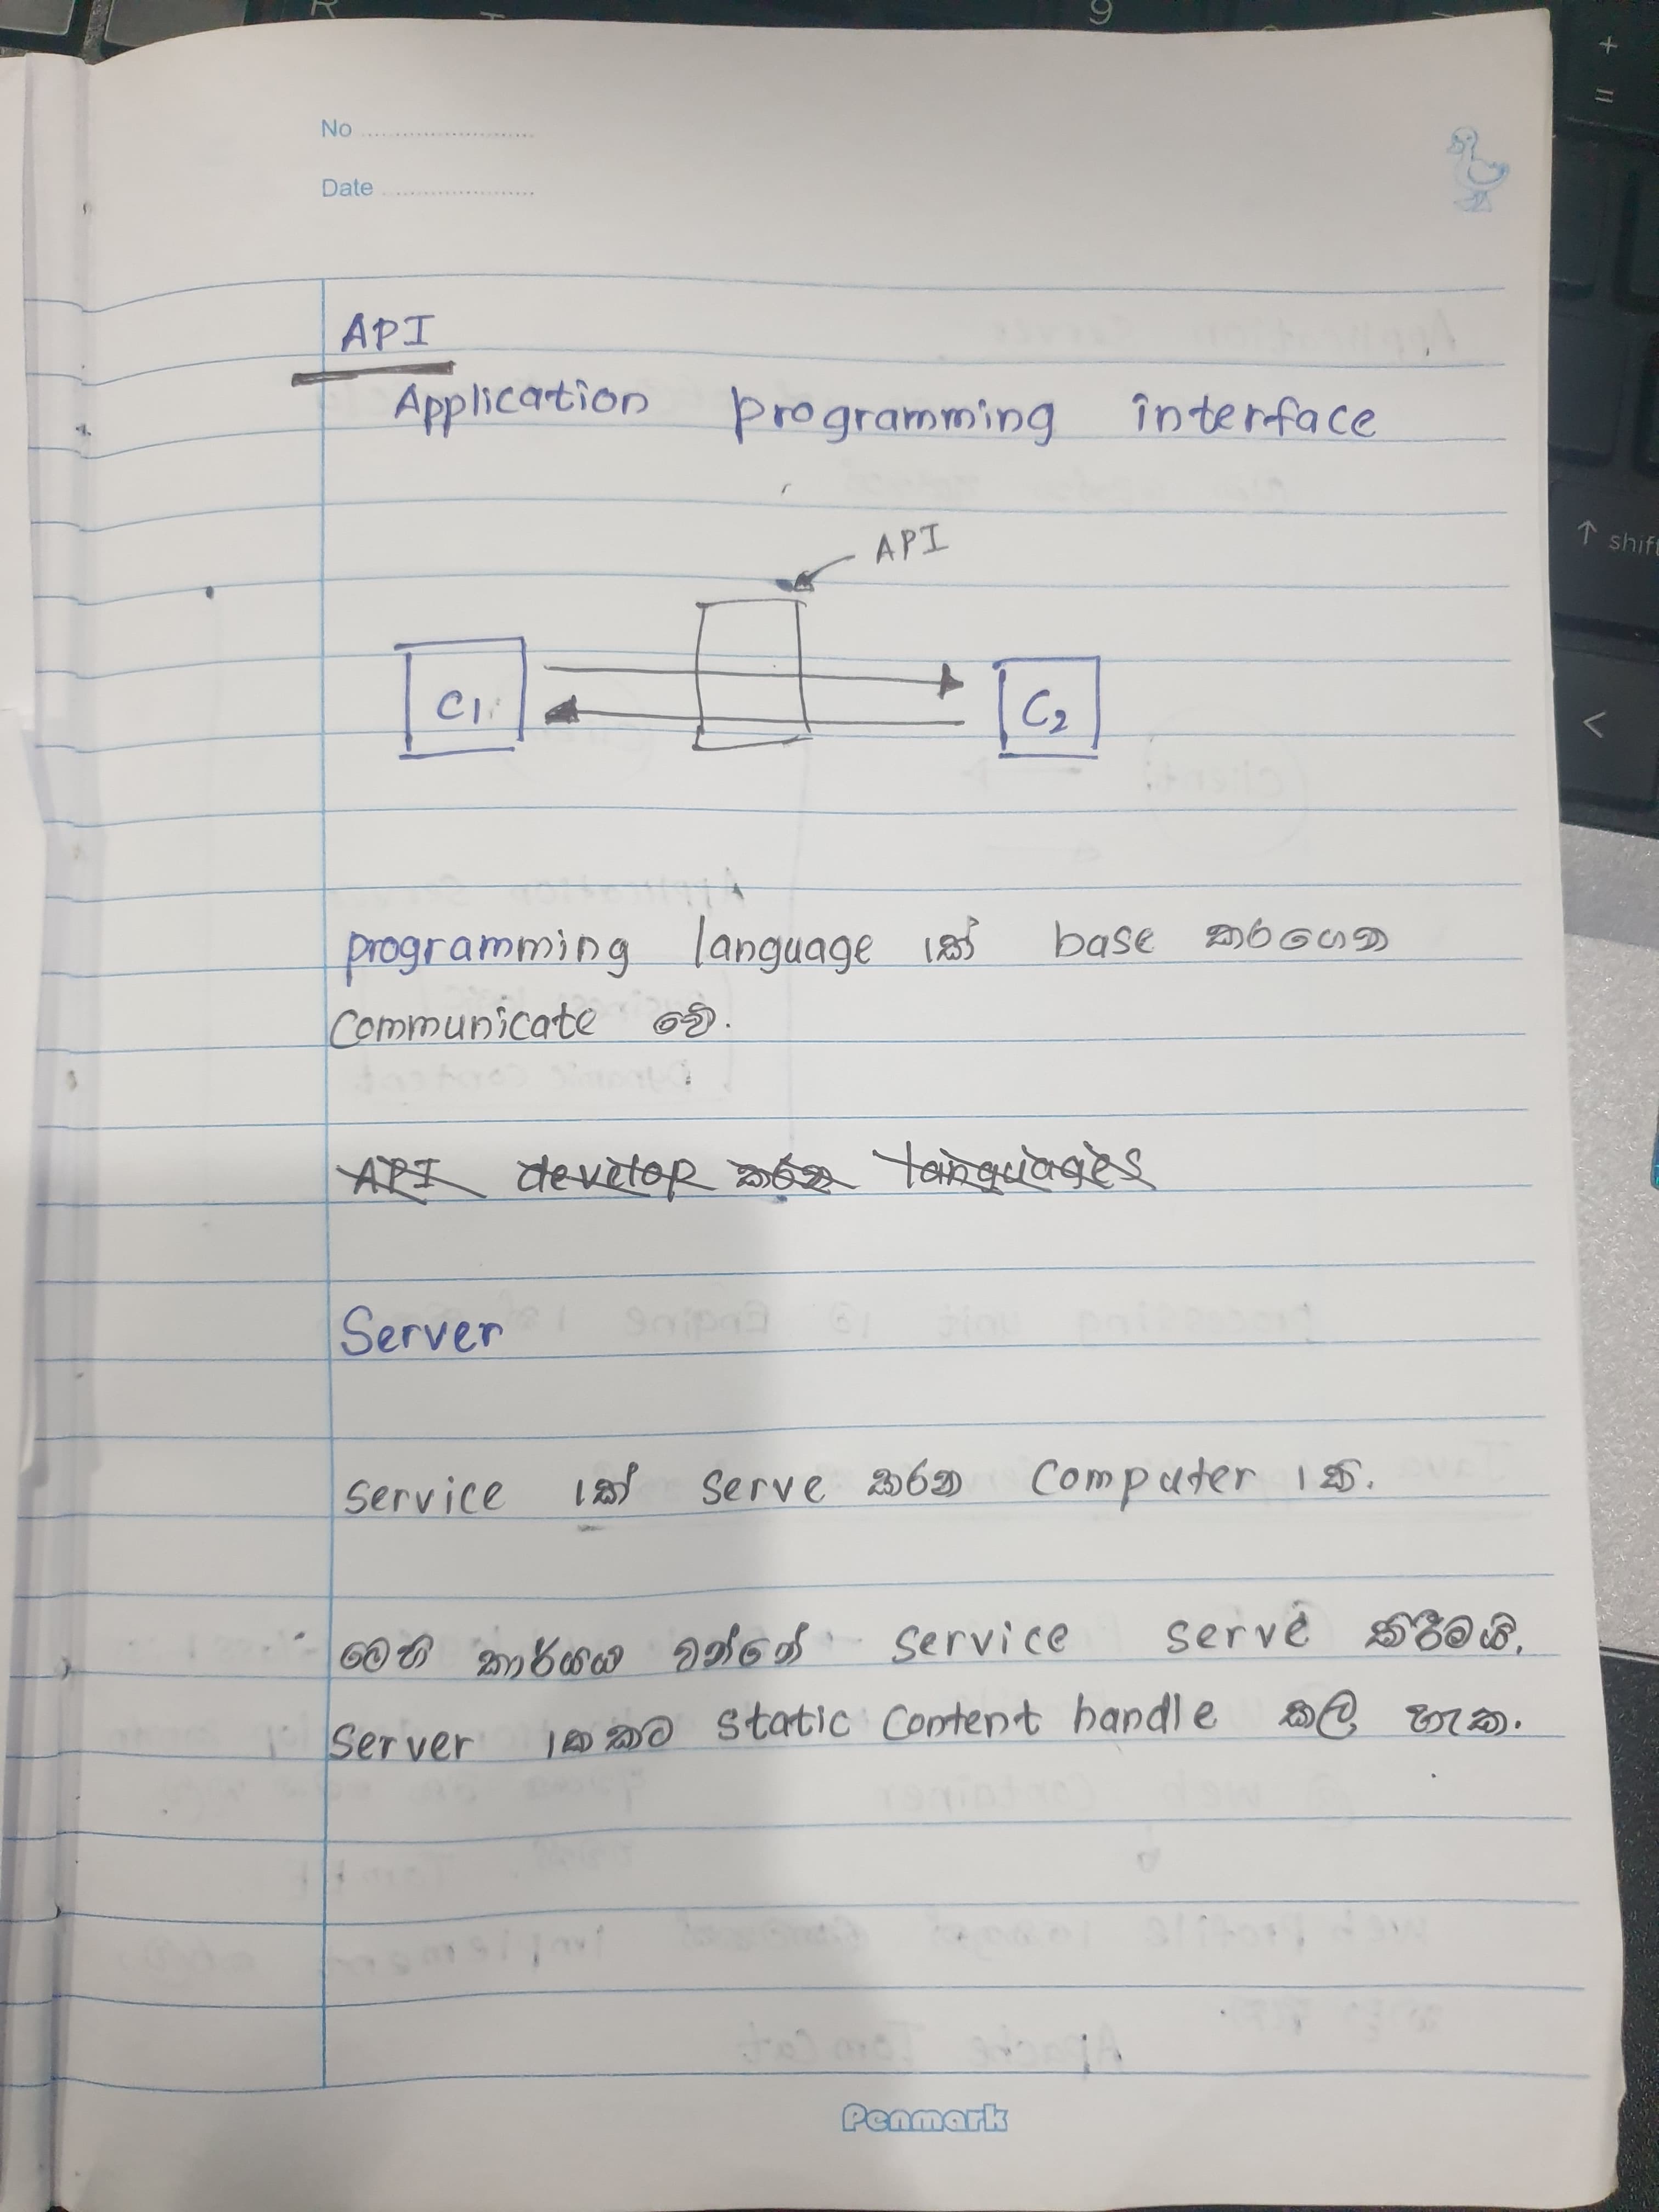 No ........................
Date ........................
API
Application programming interface
API
C1
C2
programming language 1ක් base කරගෙන
communicate වේ.
API develop කරන languages
Server
service 1ක් serve කරන computer 1කි.
මෙහි කාර්යය වන්නේ service serve කිරීමයි.
Server 1කකට static content handle කල හැක.
Penmark